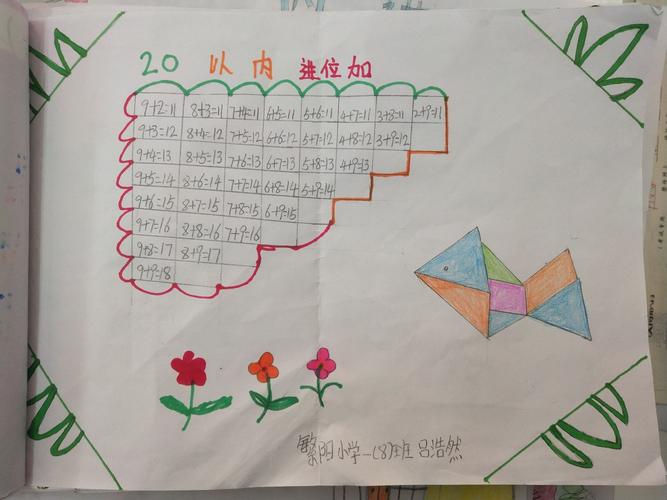 20 以内 进位加
9+2=11 8+3=11 7+4=11 6+5=11 5+6=11 4+7=11 3+8=11 2+9=11
9+3=12 8+4=12 7+5=12 6+6=12 5+7=12 4+8=12 3+9=12
9+4=13 8+5=13 7+6=13 6+7=13 5+8=13 4+9=13
9+5=14 8+6=14 7+7=14 6+8=14 5+9=14
9+6=15 8+7=15 7+8=15 6+9=15
9+7=16 8+8=16 7+9=16
9+8=17 8+9=17
9+9=18
繁阳小学一(8)班 吕浩然